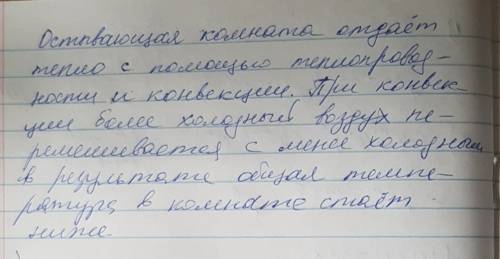 Остывающая комната отдаёт
тепло с помощью теплопровод-
ности и конвекции. При конвек-
ции более холодный воздух пе-
ремешивается с менее холодным
в результате общая темпе-
ратура в комнате стаёт
ниже